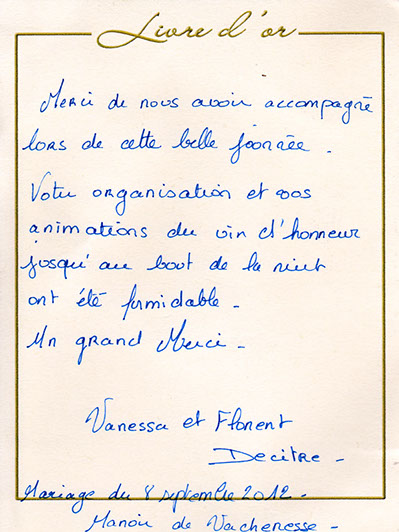 Livre d'or
Merci de nous avoir accompagné
lors de cette belle journée.
Votre organisation et vos
animations du vin d'honneur
jusqu'au bout de la nuit
ont été formidable -
Un grand Merci -
Vanessa et Florent
Decitre -
Mariage du 8 septembre 2012 -
Manoir de Vacheresse -